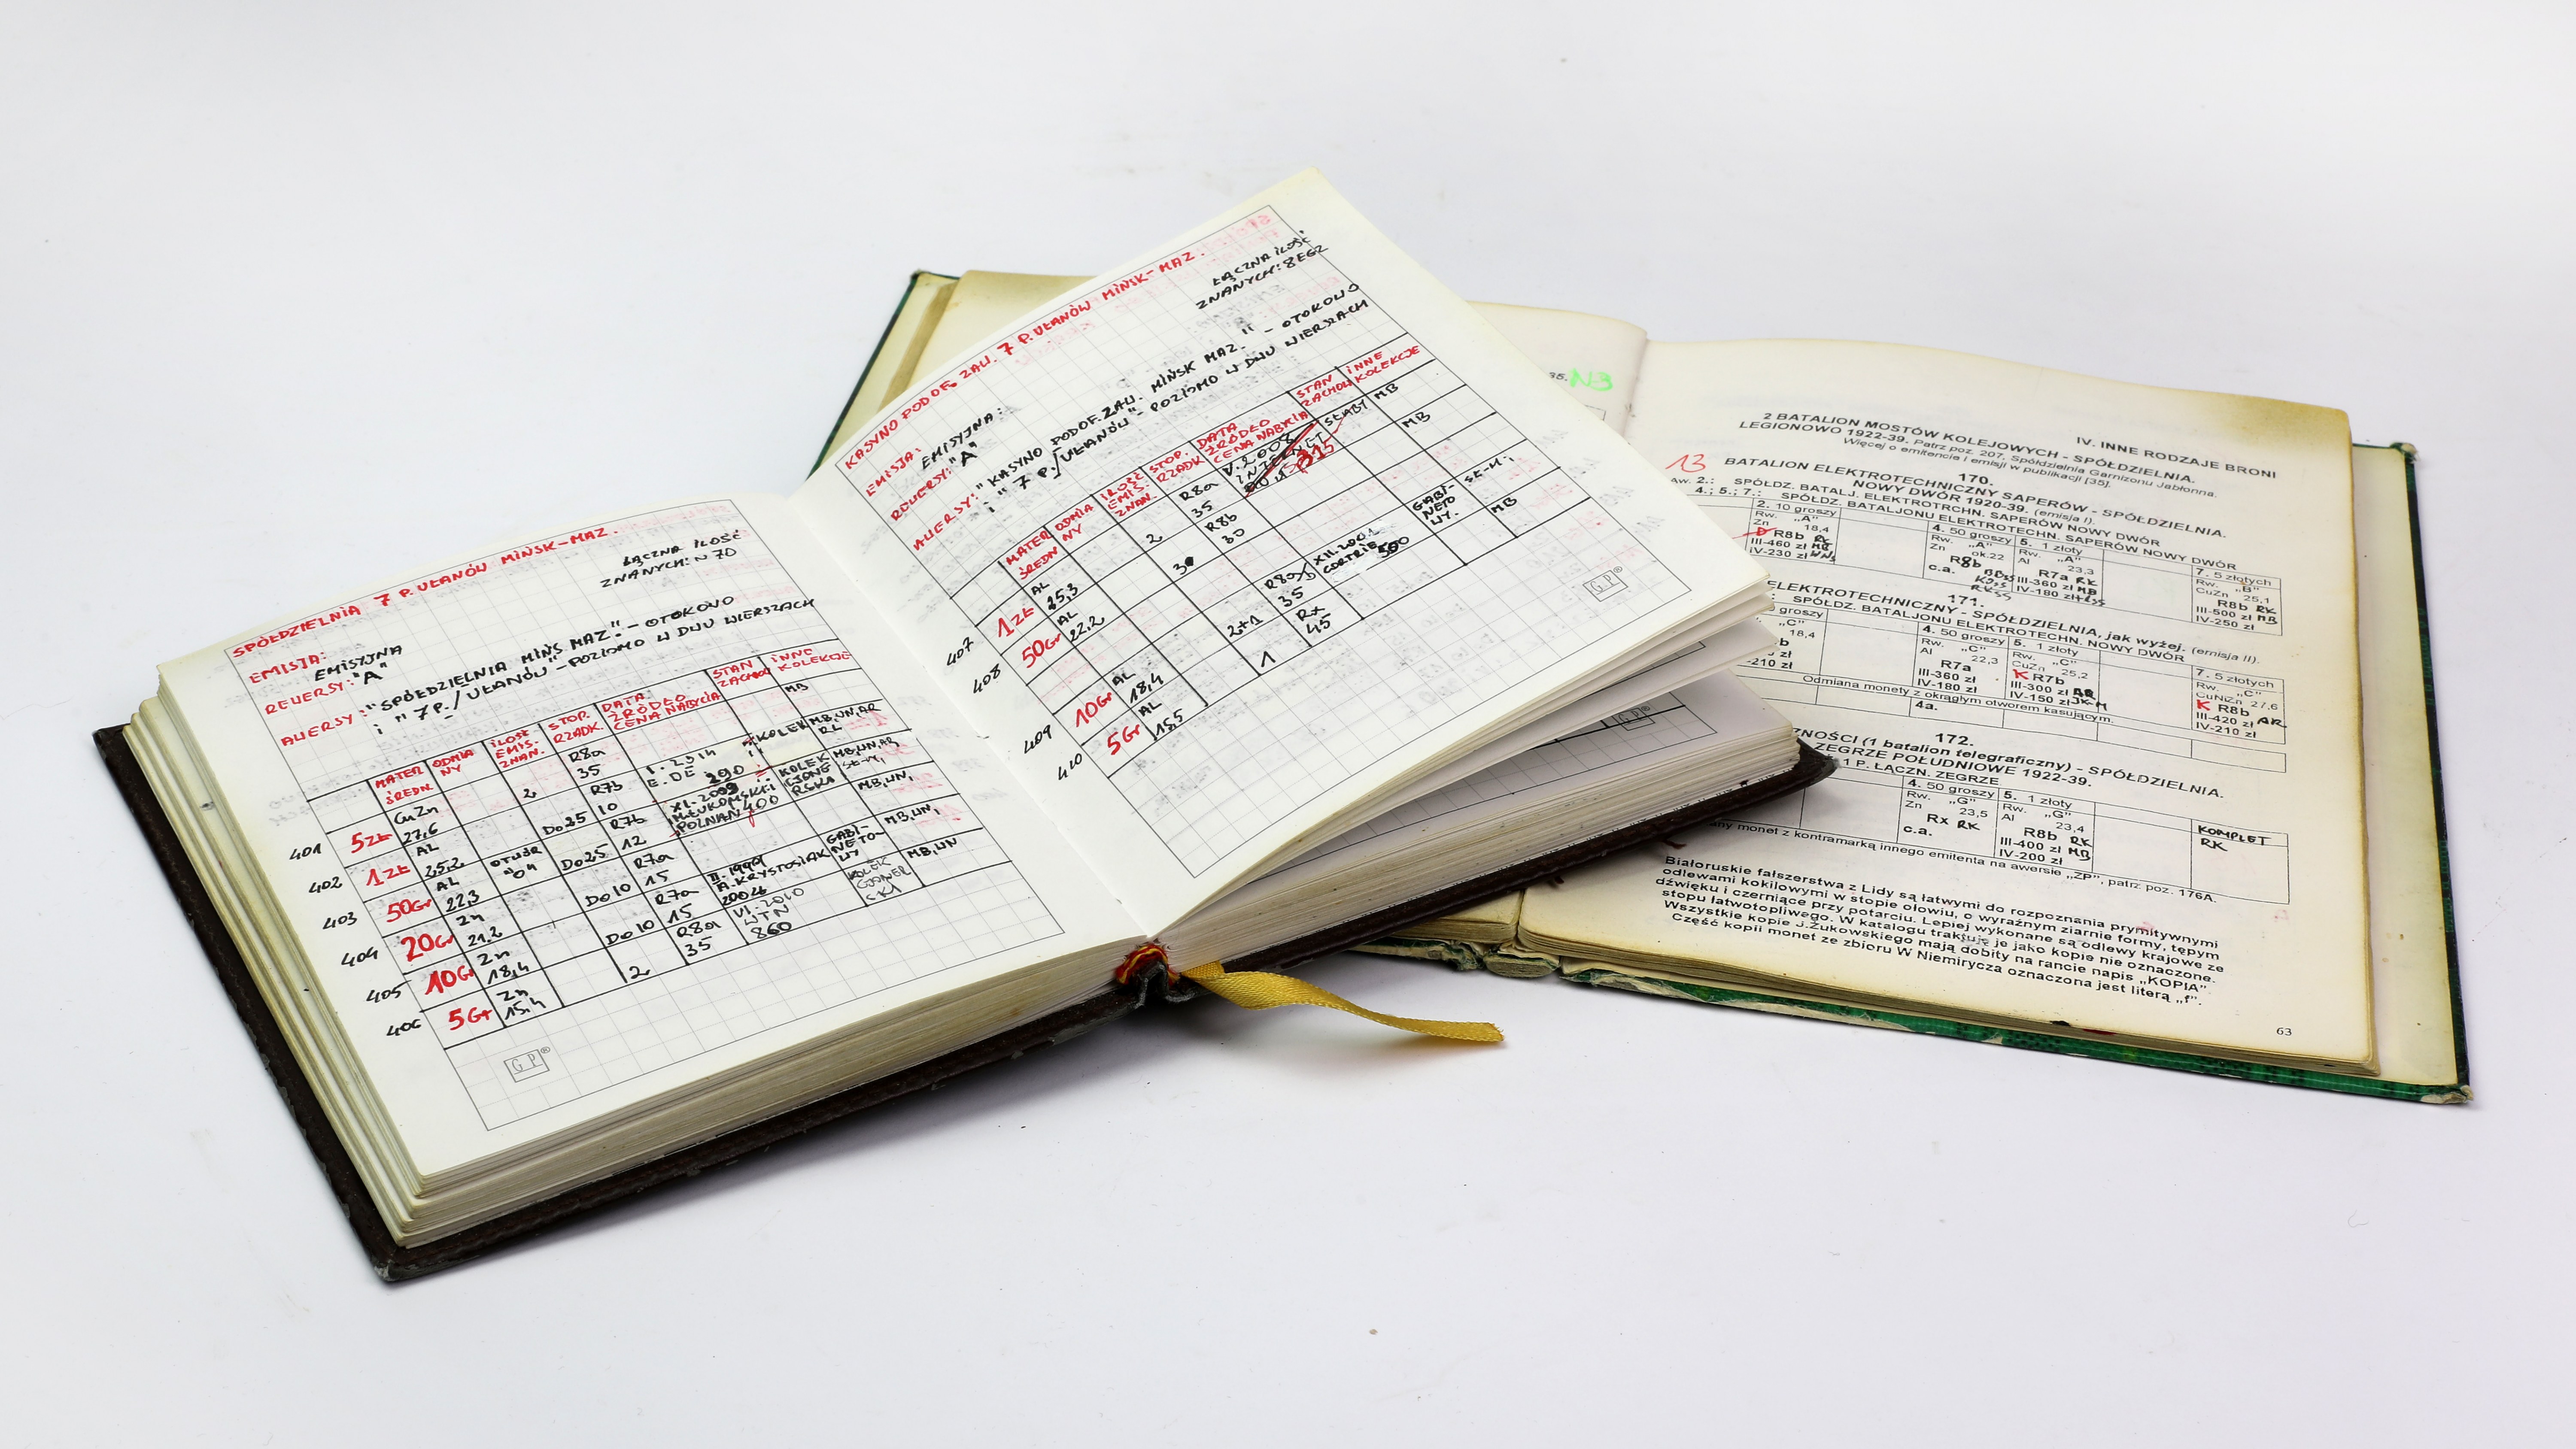 SPÓŁDZIELNIA 7 P. UŁANÓW MIŃSK-MAZ.
ŁĄCZNA ILOŚĆ
ZNANYCH: N 70
EMISJA:
EMISYJNA
REWERSY: "A"
AWERSY: "SPÓŁDZIELNIA MIŃS MAZ." - OTOKOWO
i "7 P./UŁANÓW" - POZIOMO W DWU WIERSZACH
MATER. ŚREDN. ODMIANY ILOŚĆ EMIS. ZNAN. STOP. RZADK. DATA ŹRÓDŁO CENA NABYCIA STAN ZACHOW INNE KOLEKCJE
401 5 ZŁ CuZn 27,6 2 R8a 35 MB
402 1 ZŁ AL 25,2 Do 25 R7b 10 I. 2014 E.DE 290 KOLEK MB, WN, AR RL
403 50 Gr AL 22,3 OTWÓR "O" Do 25 R7b 12 XI. 2009 M.ŁUKOMSKI POZNAŃ 400 KOLEK CJONE RSKA MB, WN, AR St-M,
404 20 Gr Zn 21,2 Do 10 R7a 15 MB, WN,
405 10 Gr Zn 18,4 Do 10 R7a 15 II. 1999 A. KRYSTOSIAK 2004 GABINETOWY MB, WN,
406 5 Gr Zn 15,4 2 R8a 35 VI. 2010 WTN 860 KOLEK CJONER SKI MB, WN
G P ®
KASYNO PODOF. ZAW. 7 P. UŁANÓW MIŃSK-MAZ.
ŁĄCZNA ILOŚĆ
ZNANYCH: 8 EGZ
EMISJA:
EMISYJNA:
REWERSY: "A"
AWERSY: "KASYNO PODOF. ZAW. MIŃSK MAZ." - OTOKOWO
i "7 P./UŁANÓW" - POZIOMO W DWU WIERSZACH
MATER ŚREDN ODMIANY ILOŚĆ EMIS. ZNAN. STOP. RZADK DATA ŹRÓDŁO CENA NABYCIA STAN ZACHOW INNE KOLEKCJE
407 1 ZŁ AL 25,3 2 R8a 35 V. 2008 315 SŁABY MB
408 50 Gr AL 22,2 3 R8b 80 MB
409 10 Gr AL 18,4 2+1 R8a/ 35 XII. 2001 500 GABINETOWY. St-M;
410 5 Gr AL 15,5 1 Rx 45 MB
G P ®
G P ®
35. N3
IV. INNE RODZAJE BRONI
2 BATALION MOSTÓW KOLEJOWYCH - SPÓŁDZIELNIA.
LEGIONOWO 1922-39. Patrz poz. 207, Spółdzielnia Garnizonu Jabłonna.
Więcej o emitencie i emisji w publikacji [35].
13
170.
BATALION ELEKTROTECHNICZNY SAPERÓW - SPÓŁDZIELNIA.
NOWY DWÓR 1920-39. (emisja I).
Aw. 2.: SPÓŁDZ. BATALJ. ELEKTROTRCHN. SAPERÓW NOWY DWÓR
4.; 5.; 7.: SPÓŁDZ. BATALJONU ELEKTROTECHN. SAPERÓW NOWY DWÓR
2. 10 groszy 4. 50 groszy 5. 1 złoty 7. 5 złotych
Rw. „A" Rw. „A" Rw. „A" Rw. „B"
Zn 18,4 Zn ok.22 Al 23,3 CuZn 25,1
R8b RK R8b R7a RK R8b RK
III-460 zł MB c.a. III-360 zł MB III-500 zł MB
IV-230 zł IV-180 zł IV-250 zł
171.
ELEKTROTECHNICZNY - SPÓŁDZIELNIA, jak wyżej. (emisja II).
: SPÓŁDZ. BATALJONU ELEKTROTECHN. NOWY DWÓR
groszy 4. 50 groszy 5. 1 złoty 7. 5 złotych
„C" Rw. „C" Rw. „C" Rw. „C"
18,4 Al 22,3 CuZn 25,2 CuNiZn 27,6
b R7a K R7b K R8b
zł III-360 zł III-300 zł AR III-420 zł AR
-210 zł IV-180 zł IV-150 zł IV-210 zł
Odmiana monety z okrągłym otworem kasującym.
4a.
172.
ZNOŚCI (1 batalion telegraficzny) - SPÓŁDZIELNIA.
ZEGRZE POŁUDNIOWE 1922-39.
1 P. ŁĄCZN. ZEGRZE
4. 50 groszy 5. 1 złoty
Rw. „G" Rw. „G" KOMPLET
Zn 23,5 Al 23,4 RK
Rx RK R8b RK
c.a. III-400 zł MB
IV-200 zł
any monet z kontramarką innego emitenta na awersie „ZP", patrz poz. 176A.
Białoruskie fałszerstwa z Lidy są łatwymi do rozpoznania prymitywnymi
odlewami kokilowymi w stopie ołowiu, o wyraźnym ziarnie formy, tępym
dźwięku i czerniące przy potarciu. Lepiej wykonane są odlewy krajowe ze
stopu łatwotopliwego. W katalogu traktuję je jako kopie nie oznaczone.
Wszystkie kopie J.Żukowskiego mają dobity na rancie napis „KOPIA".
Część kopii monet ze zbioru W Niemirycza oznaczona jest literą „f".
63